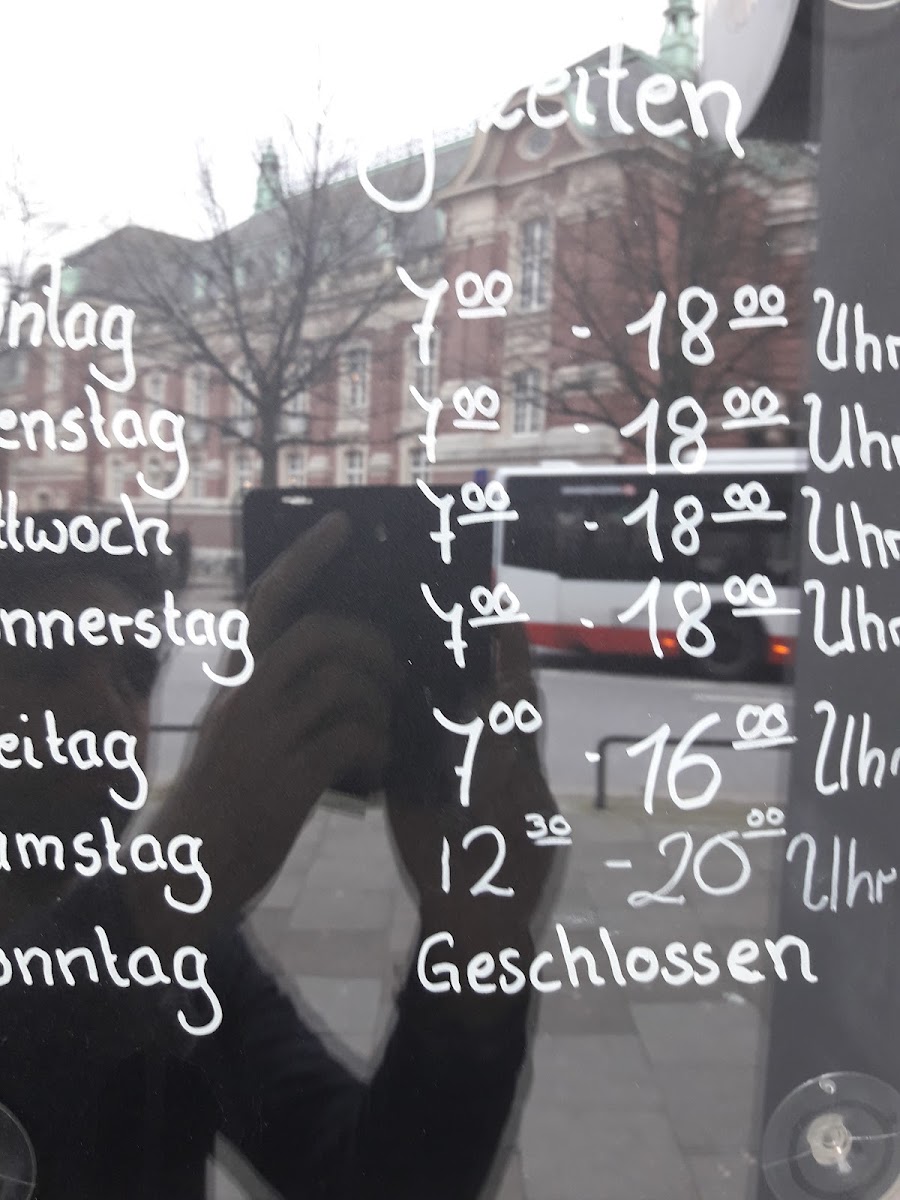 zeiten
ntag 7⁰⁰ - 18⁰⁰ Uhr
enstag 7⁰⁰ - 18⁰⁰ Uhr
ttwoch 7⁰⁰ - 18⁰⁰ Uhr
onnerstag 7⁰⁰ - 18⁰⁰ Uhr
eitag 7⁰⁰ - 16⁰⁰ Uhr
amstag 12³⁰ - 20⁰⁰ Uhr
onntag Geschlossen